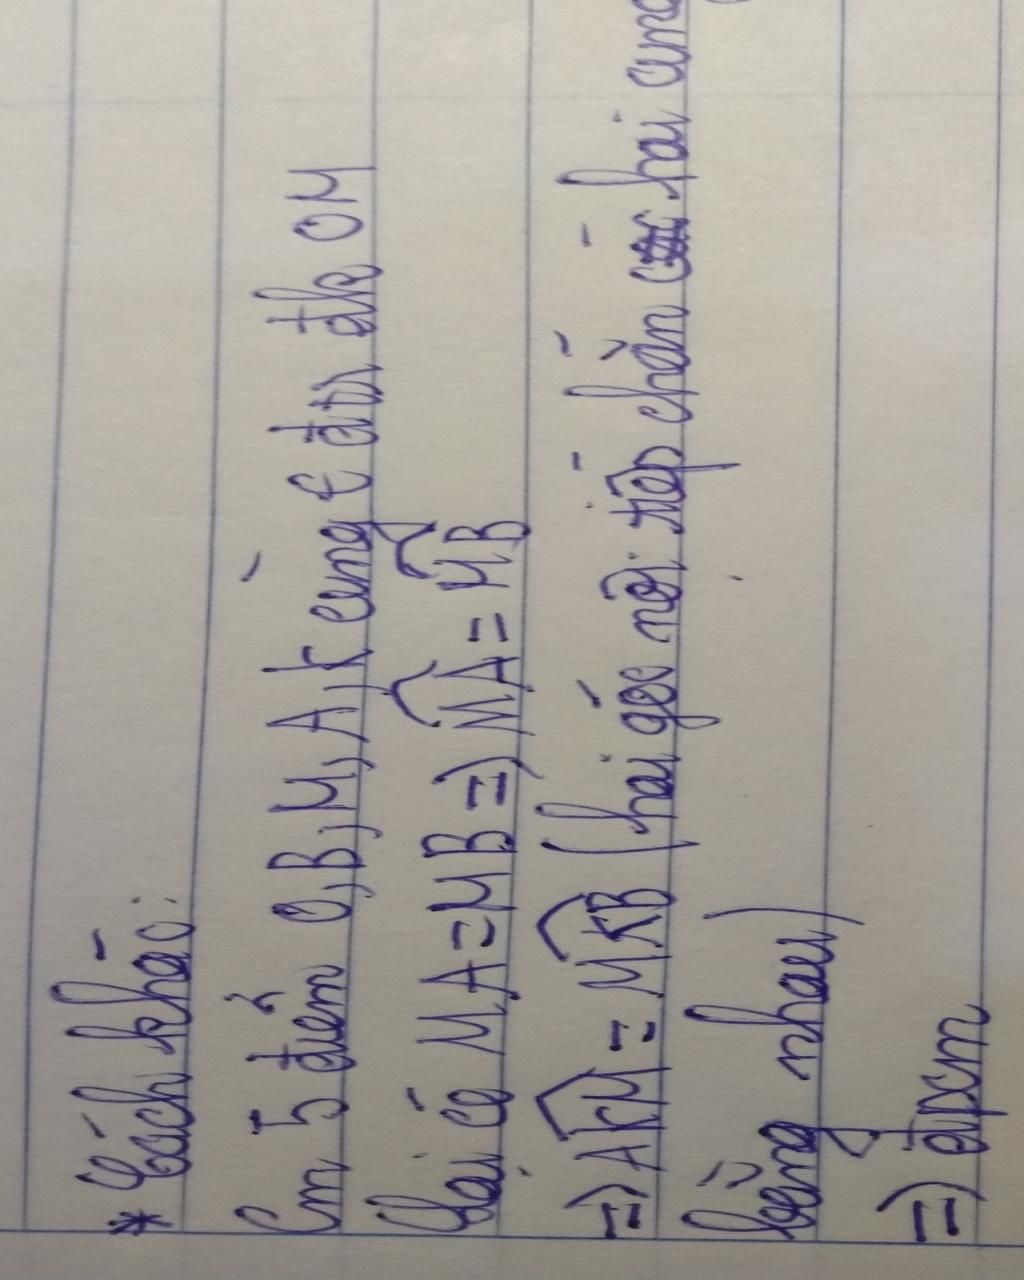 * Cách khác:
Cm 5 điểm O, B, M, A, K cùng ∈ đtr đk OM
lại có MA = MB => \overparen{MA} = \overparen{MB}
=> \widehat{AKM} = \widehat{MKB} (hai góc nội tiếp chắn hai cung
bằng nhau)
=> đpcm